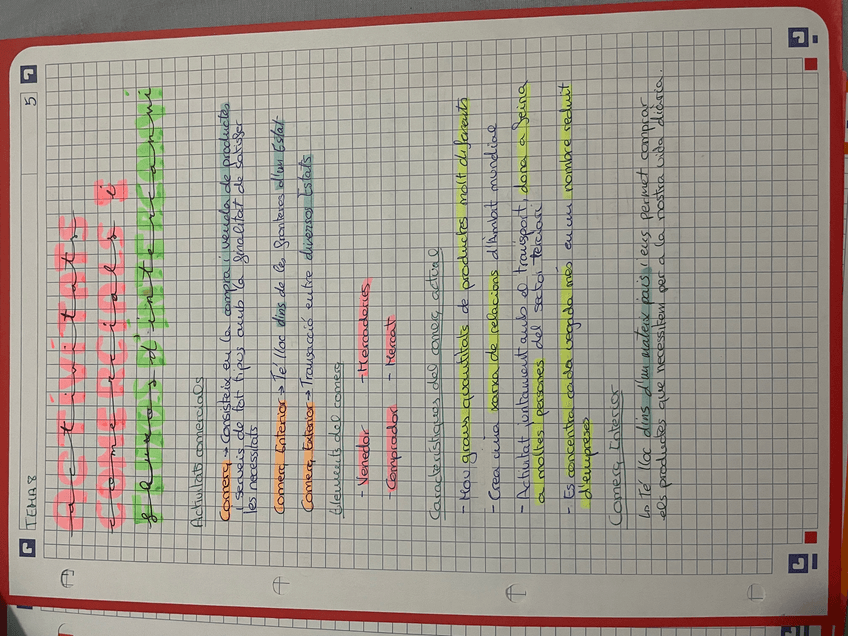 TEMA 8
5
ACTIVITATS
activitats
COMERCIALS I
comercials i
FLUXOS D'INTERCANVI
fluxos d'intercanvi
Activitats comercials
Comerç → Consisteix en la compra i venda de productes
i serveis de tot tipus amb la finalitat de satisfer
les necessitats
Comerç Interior → Té lloc dins de les fronteres d'un Estat
Comerç Exterior → Transacció entre diversos Estats
Elements del comerç
- Venedor - Mercaderies
- Comprador - Mercat
Característiques del comerç actual
- Mou grans quantitats de productes molt diferents
- Crea una xarxa de relacions d'àmbit mundial
- Activitat juntament amb el transport, dona a feina
a moltes persones del sector terciari
- Es concentra cada vegada més en un nombre reduit
d'empreses
Comerç Interior
↳ Té lloc dins d'un mateix país i ens permet comprar
els productes que necessitem per a la nostra vida diària.